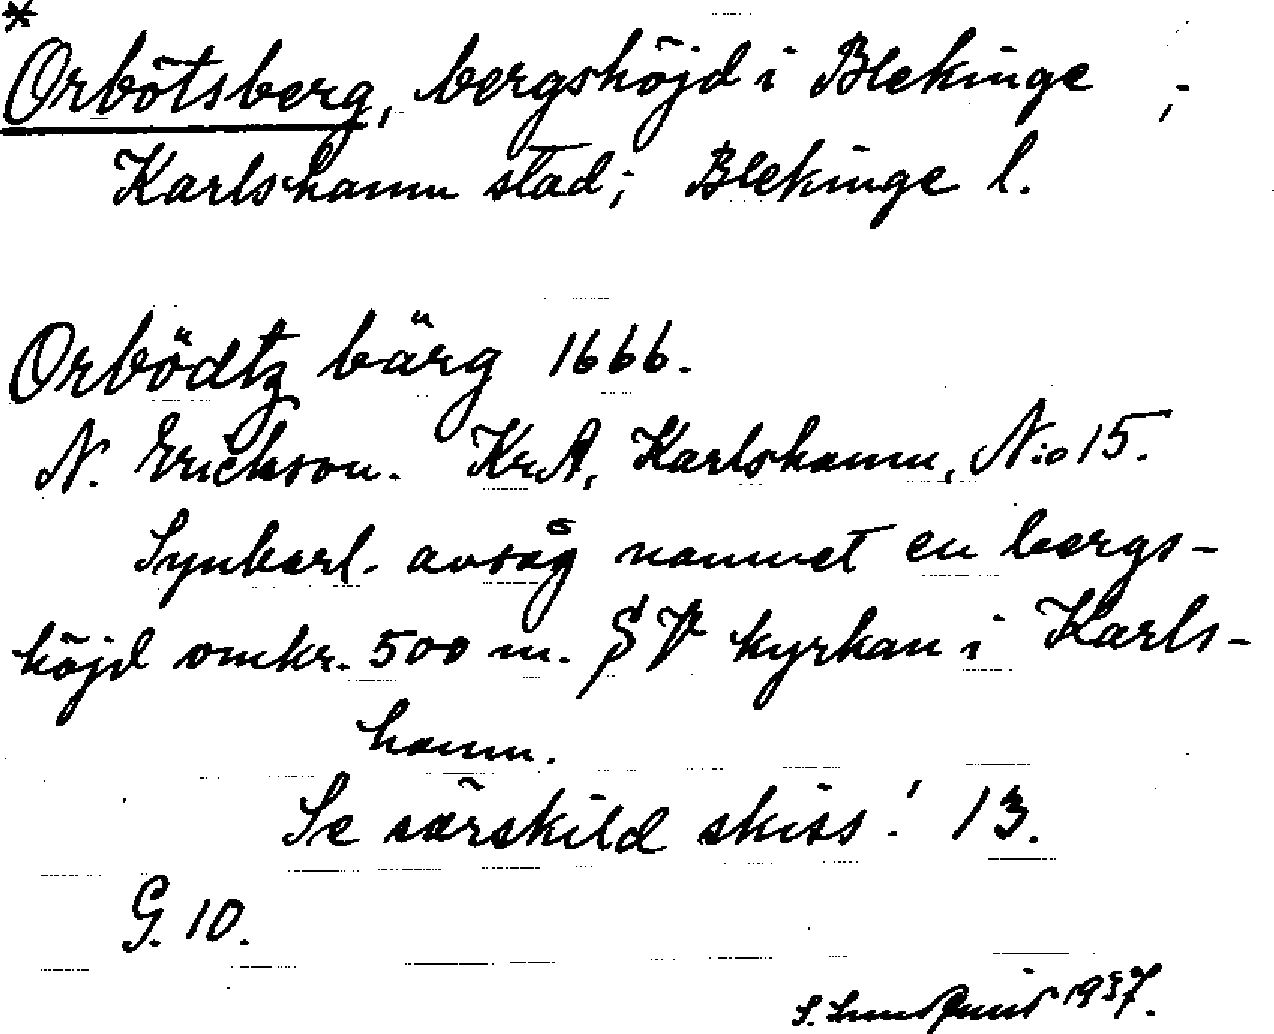 *
Orbötsberg, bergshöjd i Blekinge ;
Karlshamn stad; Blekinge l.
Orbödtz bärg 1666.
N. Erickson. KrA, Karlshamn, N:o 15.
Synbarl. avsåg namnet en bergs-
höjd omkr. 500 m. SV kyrkan i Karls-
hamn.
Se särskild skiss! 13.
G. 10.
S. Lundquist 1937.